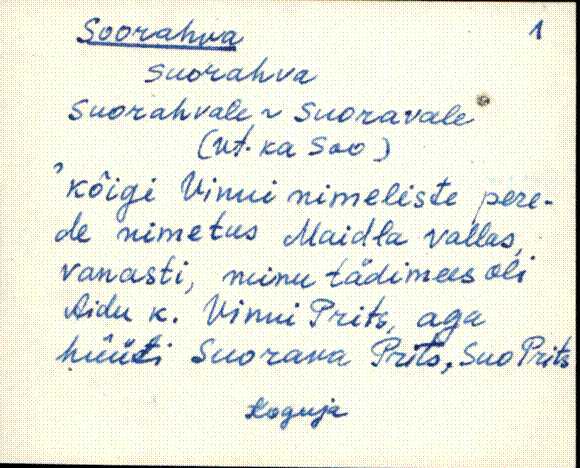 Soorahva 1
suorahva
suorahvale ~ Suoravale
(vt. ka Soo)
"kõigi Vinni nimeliste pere-
de nimetus Maidla vallas,
vanasti, minu tädimees oli
Aidu k. Vinni Prits, aga
hüüti Suorava Prits, Suo Prits
Koguja